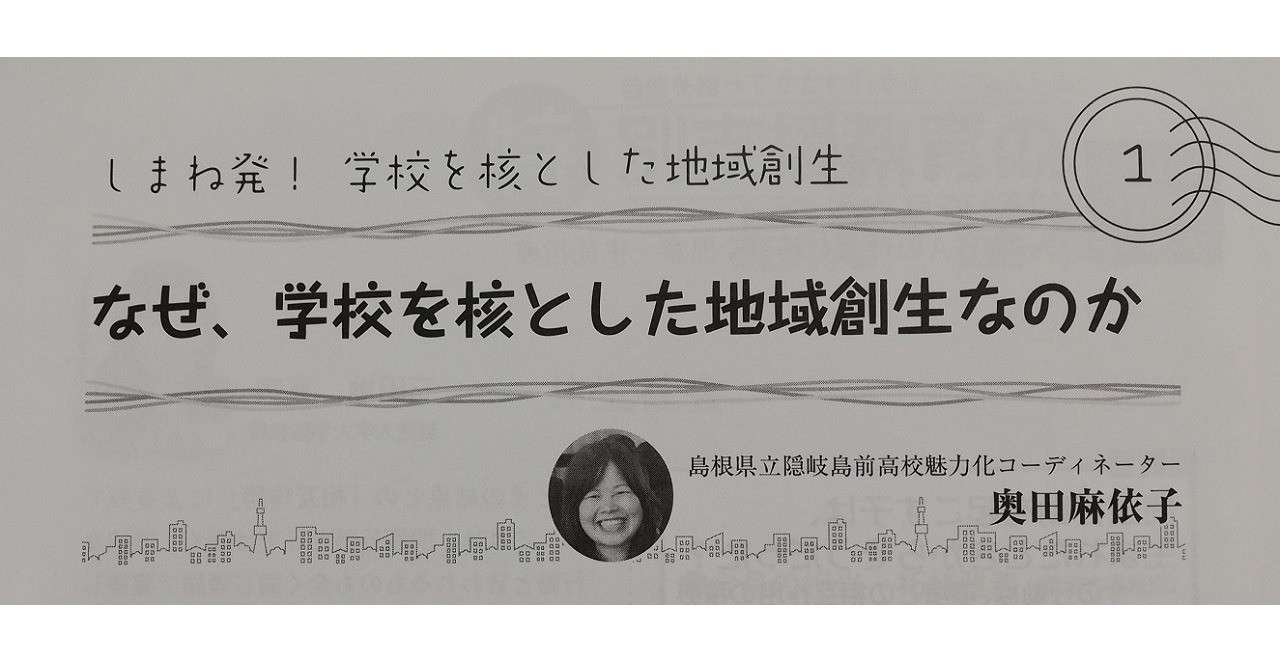 しまね発！ 学校を核とした地域創生
1
なぜ、学校を核とした地域創生なのか
島根県立隠岐島前高校魅力化コーディネーター
奥田麻依子